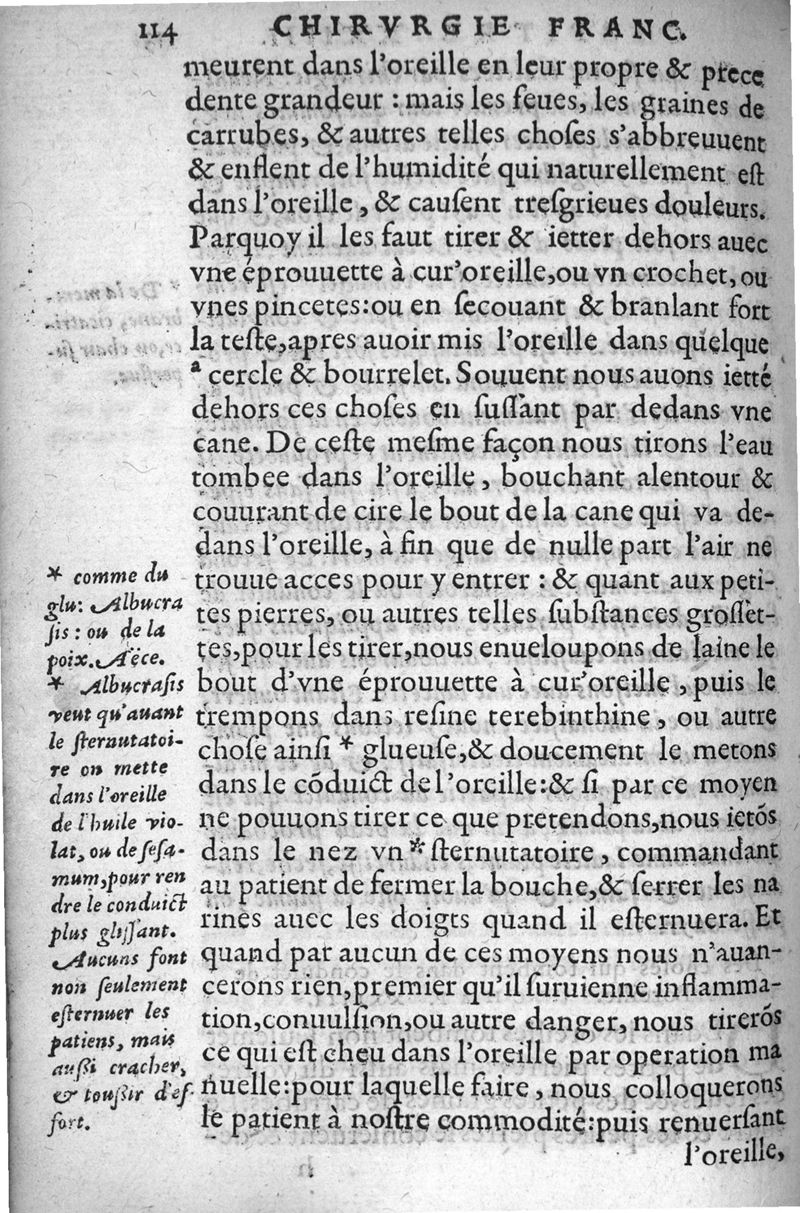 114 CHIRVRGIE FRANC.
meurent dans l'oreille en leur propre & prece
dente grandeur : mais les feues, les graines de
carrubes, & autres telles choſes s'abbreuuent
& enflent de l'humidité qui naturellement eſt
dans l'oreille, & cauſent treſgrieues douleurs.
Parquoy il les faut tirer & ietter dehors auec
vne éprouuette à cur'oreille, ou vn crochet, ou
vnes pincetes: ou en ſecouant & branlant fort
la teſte, apres auoir mis l'oreille dans quelque
ª cercle & bourrelet. Souuent nous auons ietté
dehors ces choſes en ſuſſant par dedans vne
cane. De ceſte meſme façon nous tirons l'eau
tombee dans l'oreille, bouchant alentour &
couurant de cire le bout de la cane qui va de-
dans l'oreille, à fin que de nulle part l'air ne
trouue acces pour y entrer : & quant aux peti-
tes pierres, ou autres telles ſubſtances groſſet-
tes, pour les tirer, nous enueloupons de laine le
bout d'vne éprouuette à cur'oreille, puis le
trempons dans reſine terebinthine, ou autre
choſe ainſi * glueuſe, & doucement le metons
dans le cōduict de l'oreille: & ſi par ce moyen
ne pouuons tirer ce que pretendons, nous ietõs
dans le nez vn * ſternutatoire, commandant
au patient de fermer la bouche, & ſerrer les na
rines auec les doigts quand il eſternuera. Et
quand par aucun de ces moyens nous n'auan-
cerons rien, premier qu'il ſuruienne inflamma-
tion, conuulſion, ou autre danger, nous tirerõs
ce qui eſt cheu dans l'oreille par operation ma
nuelle: pour laquelle faire, nous colloquerons
le patient à noſtre commodité: puis renuerſant
l'oreille,
* comme du
glu: Albucra
ſis : ou de la
poix. Aëce.
* Albucraſis
veut qu'auant
le ſternutatoi-
re on mette
dans l'oreille
de l'huile vio-
lat, ou de ſeſa-
mum, pour ren
dre le conduict
plus gliſſant.
Aucuns font
non ſeulement
eſternuer les
patiens, mais
auſſi cracher,
& touſſir d'eſ-
fort.